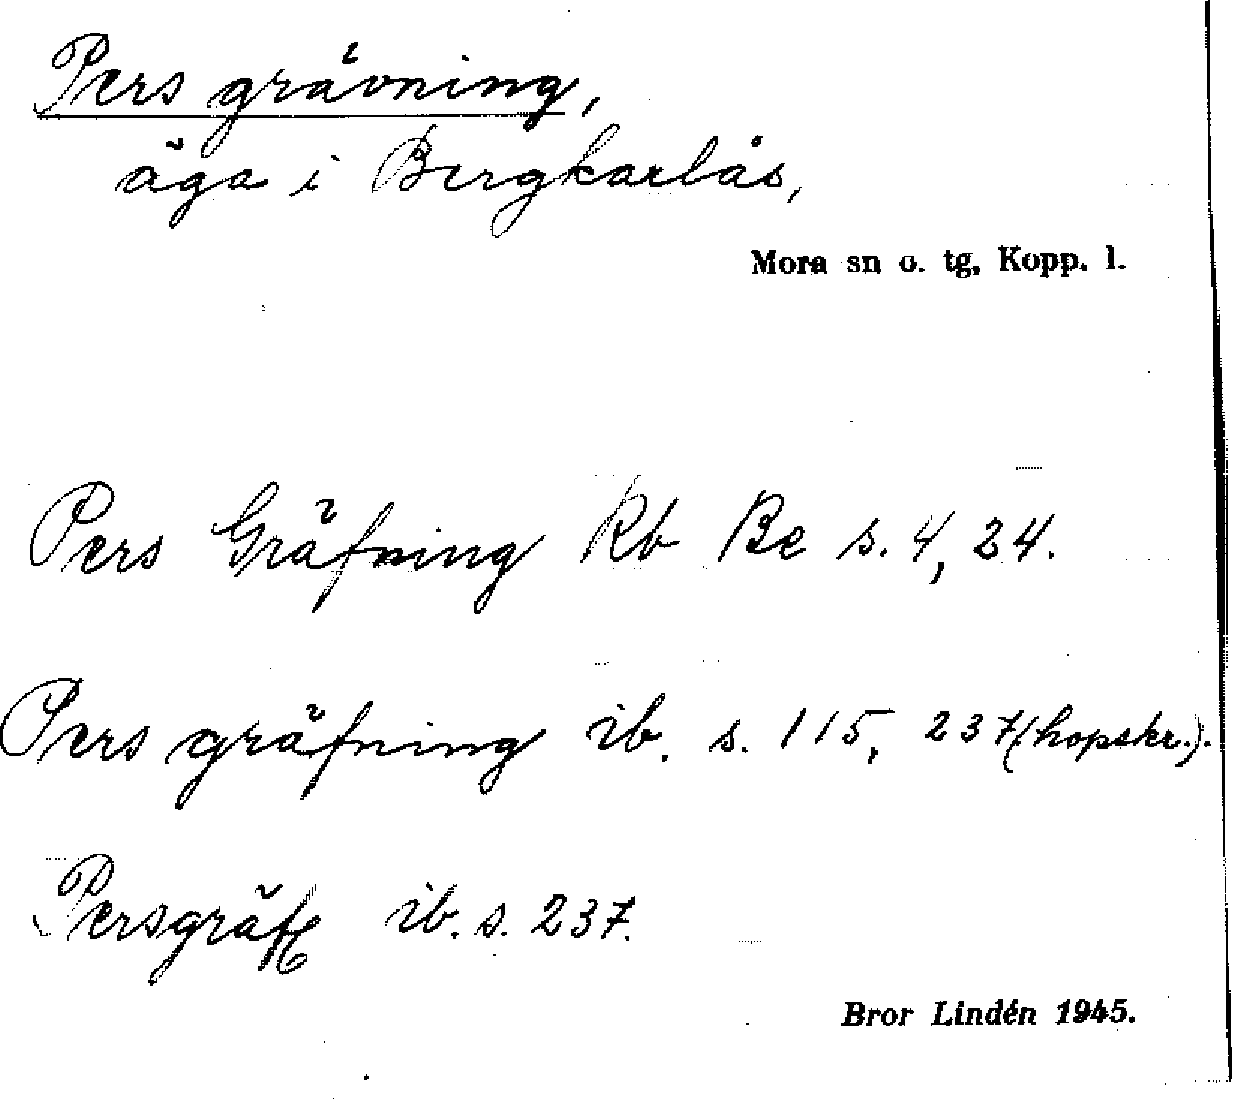 Pers grävning,
äga i Bergkarlås,
Mora sn o. tg, Kopp. l.
Pers Gräfning Rb Be s. 4, 24.
Pers gräfning ib. s. 115, 237 (hopskr.).
Persgräf ib. s. 237.
Bror Lindén 1945.